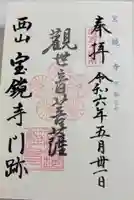 奉拝
令和六年五月卅一日
觀世音菩薩
西山宝鏡寺門跡